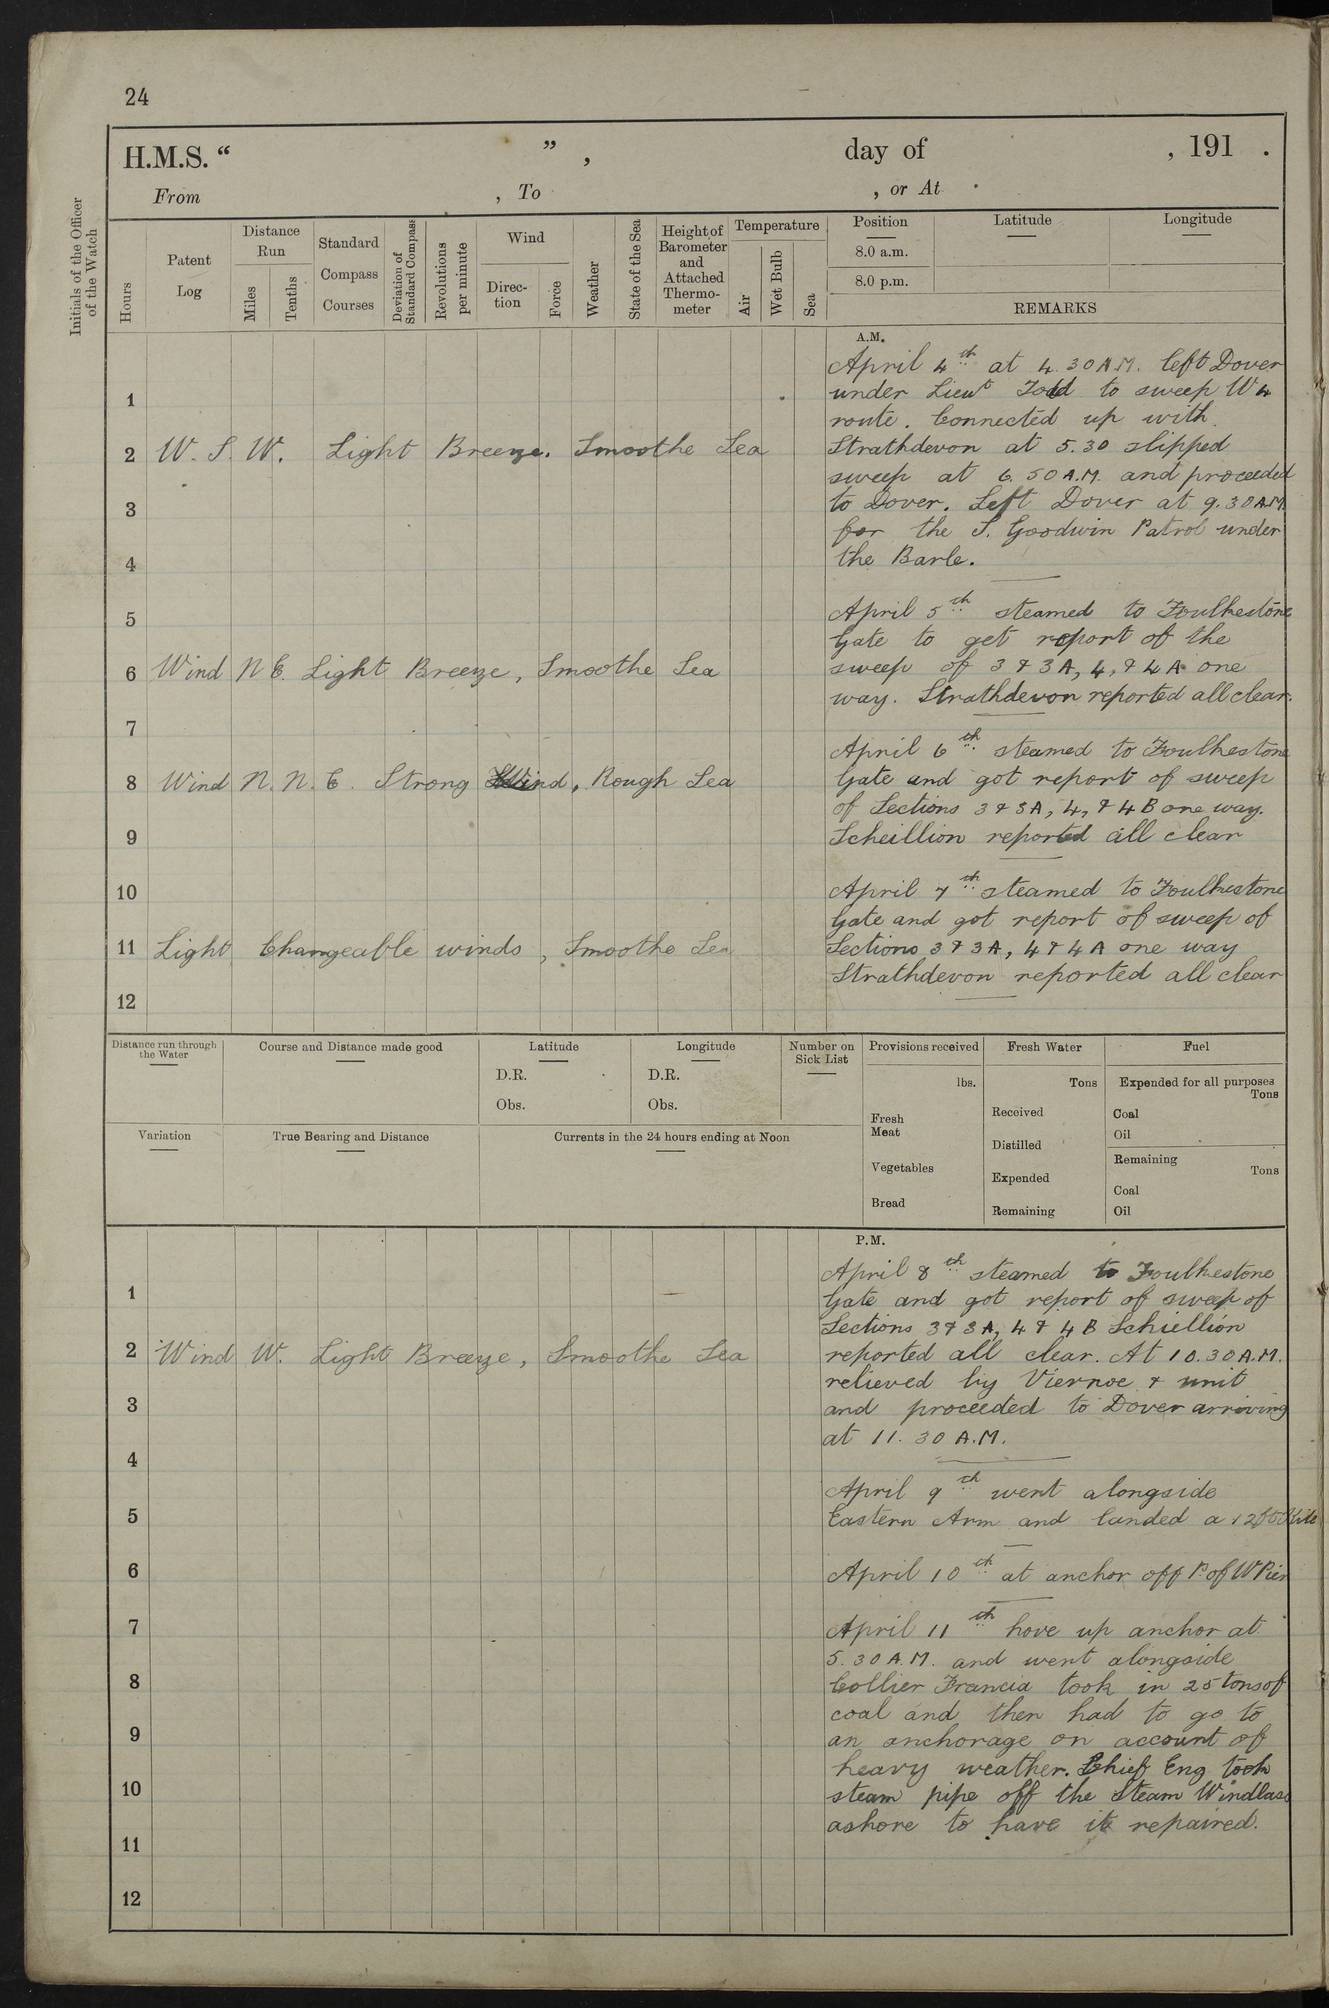 24
H.M.S. “ ” , day of , 191 .
From , To , or At
Initials of the Officer of the Watch
Hours
Patent Log
Distance Run
Miles
Tenths
Standard Compass Courses
Deviation of Standard Compass
Revolutions per minute
Wind
Direction
Force
Weather
State of the Sea
Height of Barometer and Attached Thermometer
Temperature
Air
Wet Bulb
Sea
Position
Latitude
Longitude
8.0 a.m.
8.0 p.m.
REMARKS
A.M.
April 4th at 4.30 A.M. left Dover
1
under Lieut Todd to sweep W 4
route. Connected up with
2 W. S. W. Light Breeze. Smoothe Sea
Strathdevon at 5.30 slipped
sweep at 6.50 A.M. and proceeded
3
to Dover. Left Dover at 9.30 A.M.
for the S. Goodwin Patrol under
4
the Barle.
April 5th steamed to Foulkestone
5
Gate to get report of the
6 Wind N E. Light Breeze, Smoothe Sea
sweep of 3 & 3A, 4, & 4A one
way. Strathdevon reported all clear.
7
April 6th steamed to Foulkestone
8 Wind N. N. E. Strong Wind, Rough Sea
Gate and got report of sweep
of Sections 3 & 3A, 4, & 4B one way.
9
Scheillion reported all clear
10
April 7th steamed to Foulkestone
Gate and got report of sweep of
11 Light Changeable winds, Smoothe Sea
Sections 3 & 3A, 4 & 4A one way
Strathdevon reported all clear
12
Distance run through the Water
Course and Distance made good
Latitude
D.R.
Obs.
Longitude
D.R.
Obs.
Number on Sick List
Provisions received
lbs.
Fresh Meat
Vegetables
Bread
Fresh Water
Tons
Received
Distilled
Expended
Remaining
Fuel
Expended for all purposes
Tons
Coal
Oil
Remaining
Tons
Coal
Oil
Variation
True Bearing and Distance
Currents in the 24 hours ending at Noon
P.M.
April 8th steamed to Foulkestone
1
Gate and got report of sweep of
Sections 3 & 3A, 4 & 4B Schiellion
2 Wind W. Light Breeze, Smoothe Sea
reported all clear. At 10.30 A.M.
relieved by Viernoe & unit
3
and proceeded to Dover arriving
at 11.30 A.M.
4
April 9th went alongside
5
Eastern Arm and landed a 12
6
April 10th at anchor off P. of W Pier
7
April 11th hove up anchor at
5.30 A.M. and went alongside
8
Collier Francia took in 25 tons of
coal and then had to go to
9
an anchorage on account of
heavy weather. Chief Eng took
10
steam pipe off the Steam Windlass
ashore to have it repaired.
11
12